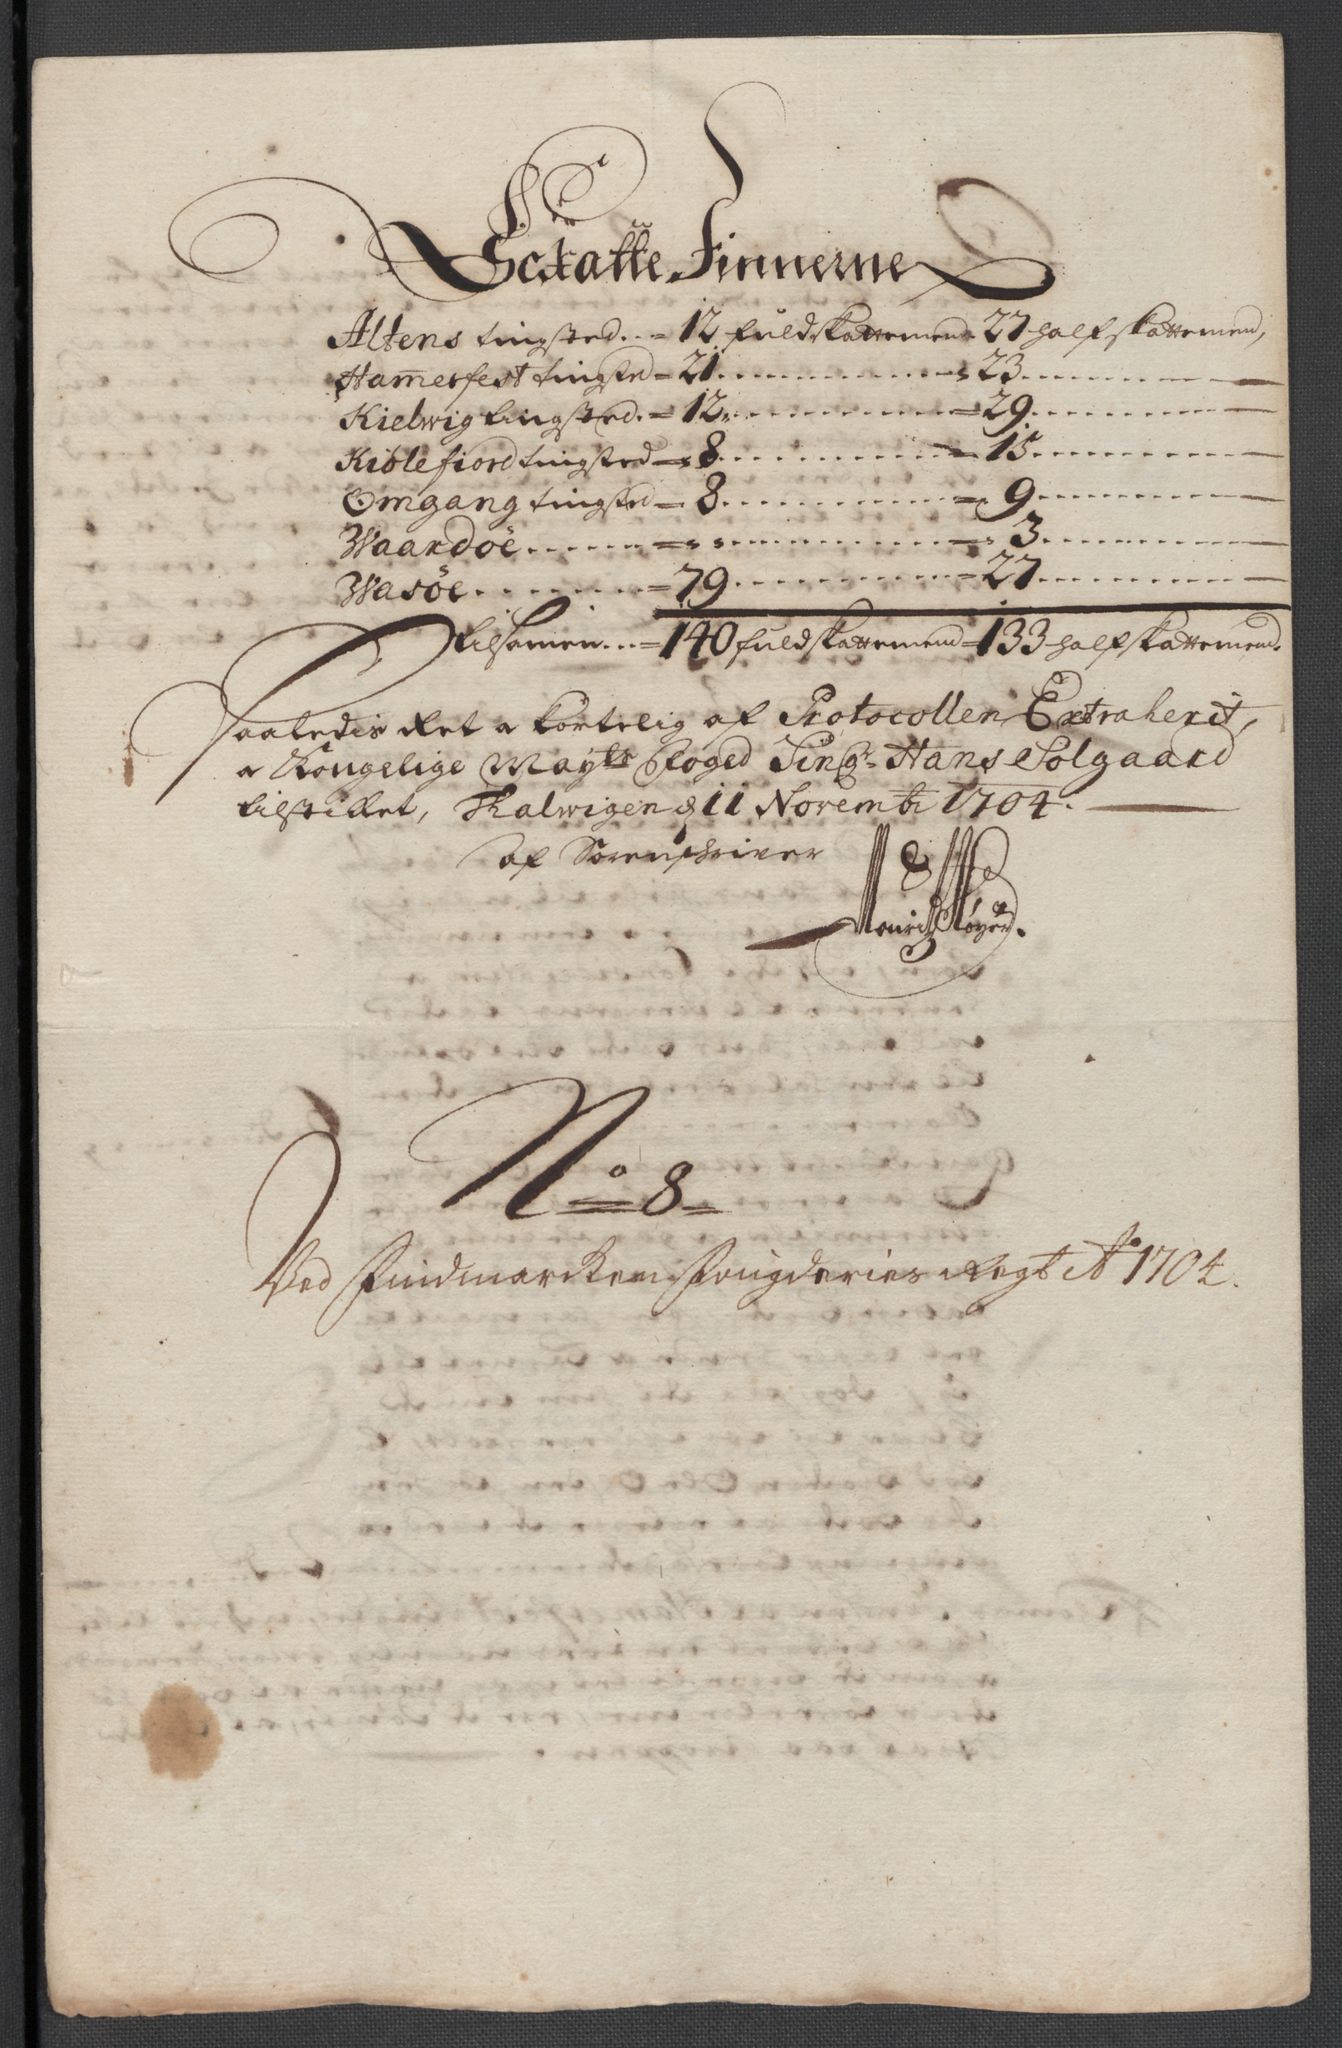 Sckatte Finnerne
Altens tingsted... = 12 fuldskattemend = 27 half skattemend,
Hamerfest tingsted = 21 = 23
Kielwig tingsted. = 12 = 29
Kiölefiord tingsted = 8 = 15
Omgang tingsted = 8 = 9
Waardöe = = 3
Wasöe = 79 = 27
tilsamen... = 140 fuldskattemend = 133 half skattemend.
Saaledis Ret a kortelig af Protocollen Extraherit,
a Kongelige Mayts Foged Sin Hans Solgaard
tilstillet, Thalwigen d 11 Novembr 1704.
af Sorenschriver
No 8
Ved Findmarckens Fougderies Regt Ao 1704.